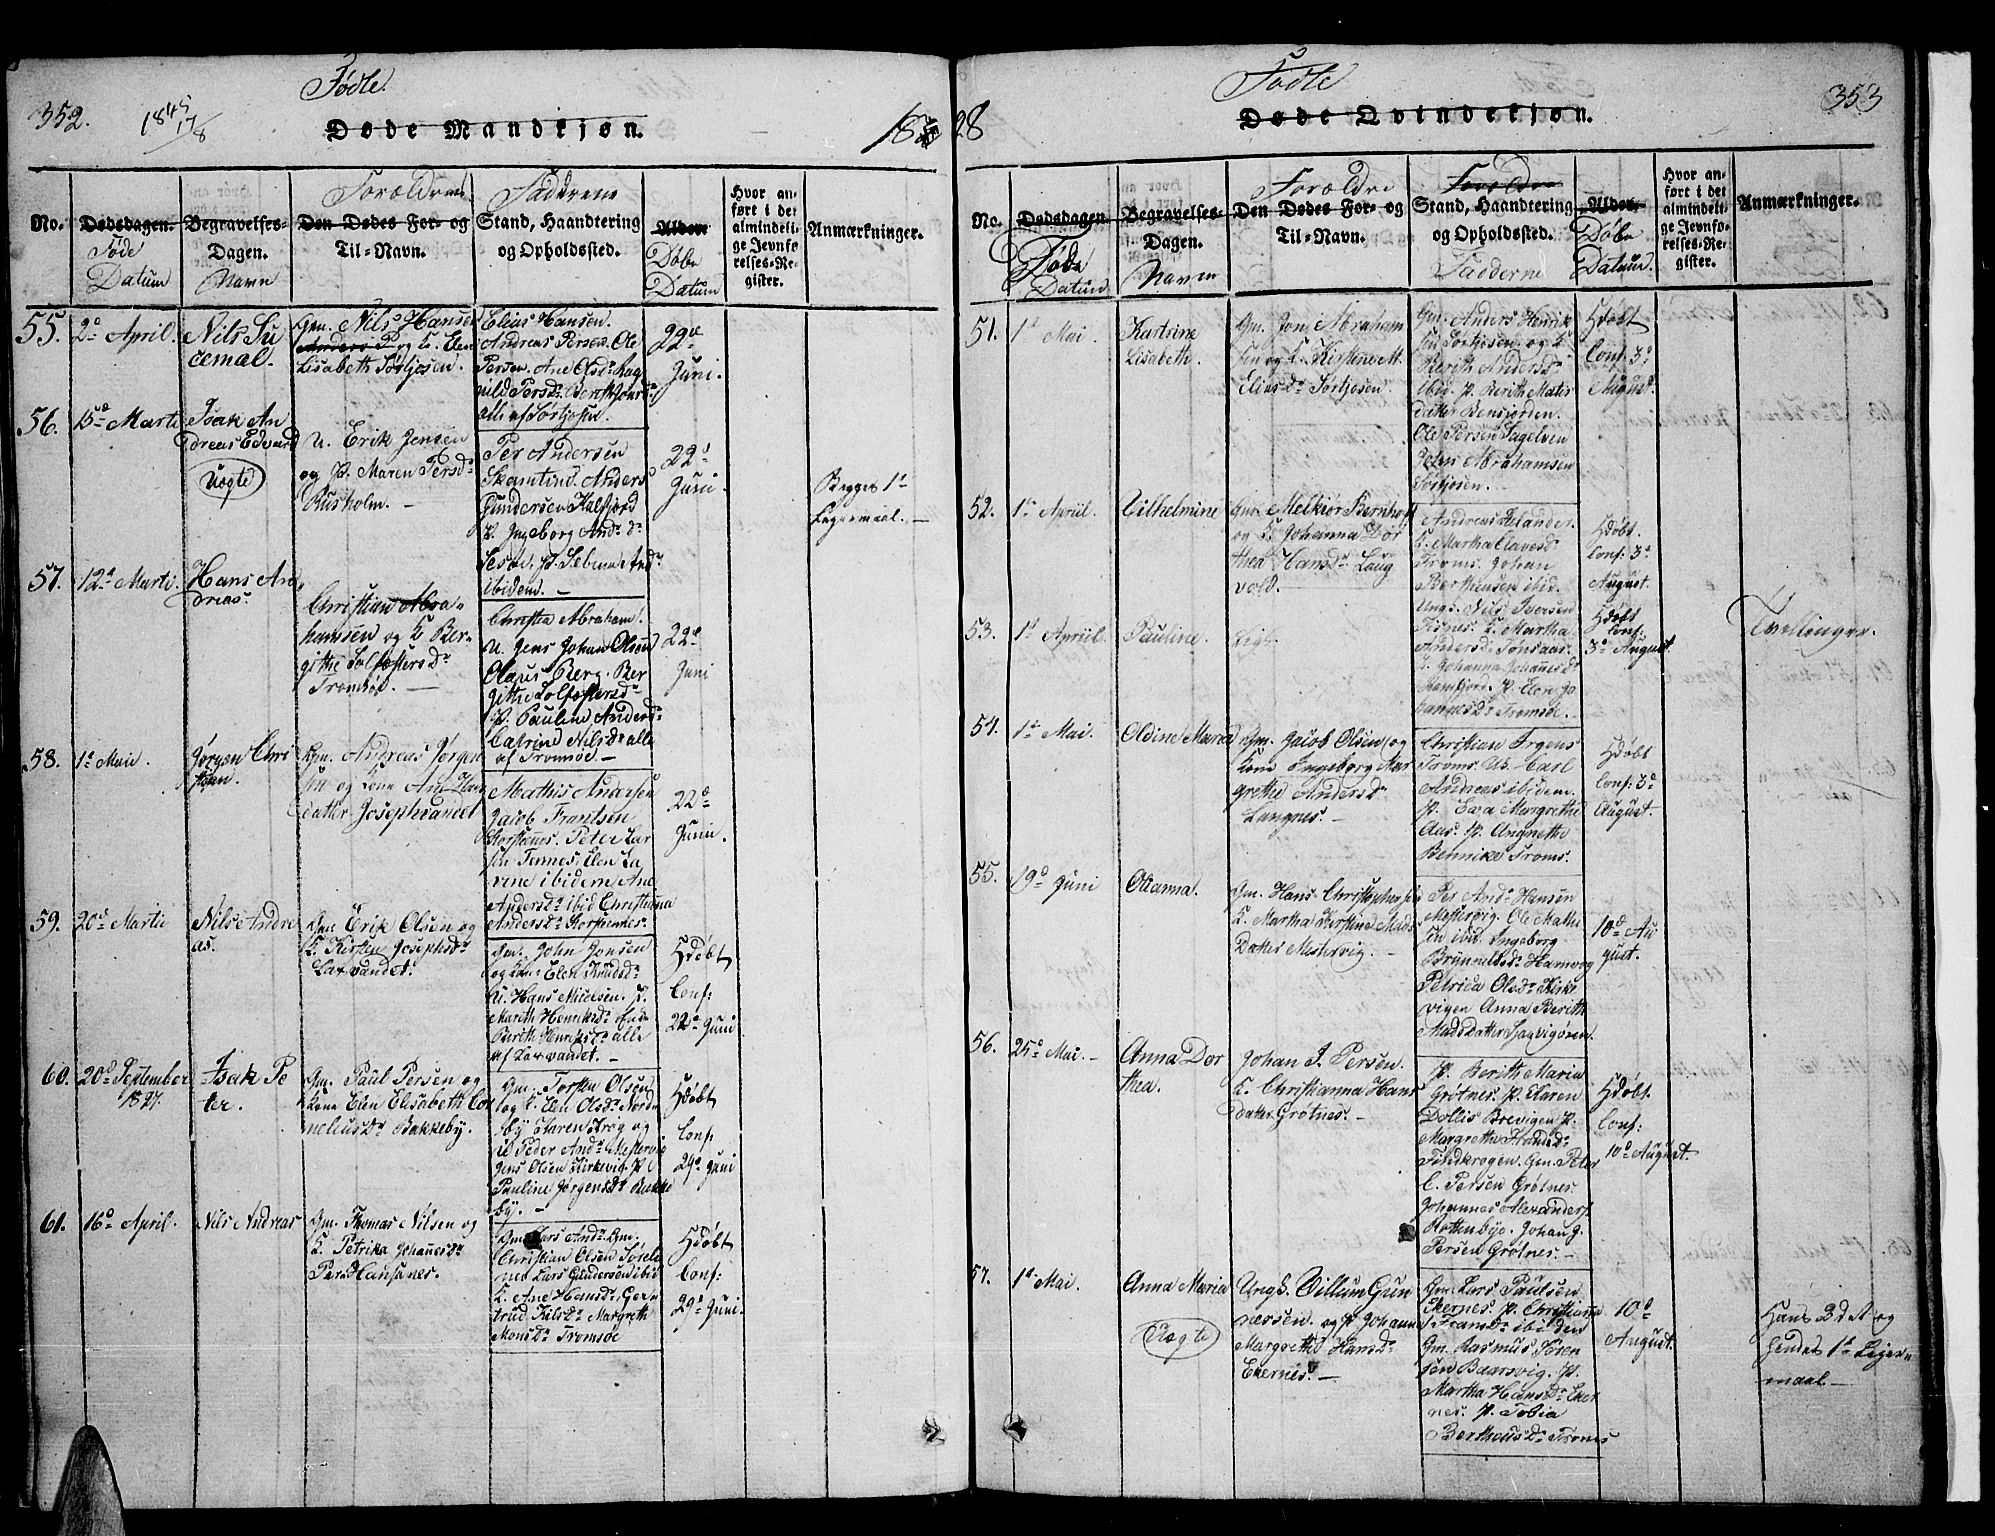 352.
18 45/17/8
Fødte.
Døde Mandkjøn.
1828
No.
Dødsdagen.
Føde
Datum
Begravelses-
Dagen.
Navn
Forældrenes
Den Dødes For- og
Til-Navn.
Faddrene
Stand, Haandtering
og Opholdssted.
Alder.
Døbe
Datum
Hvor an-
ført i det
almindeli-
ge Jevnfø-
relses-Re-
gister.
Anmærkninger.
55.
2d April.
Nils Su
cemal.
Gm. Nils Hansen
Anders P og K. Elen
Lisabeth Sørkjosen.
Elias Hansen.
Andreas Persen. Ole
Persen. Ane Olsdr. Rag
nild Persdr.
alle af Sørkjosen.
22de
Juni.
56.
15de Marti
Isak An
dreas Edvard
Uægte
U. Erik Jensen
og P. Maren Persdr.
Rusholm. —
Per Andersen
Skamtind. Anders
Gundersen Kalfjord
P. Ingeborg Andr. dr.
Sesøe. P. Selma And
ibidem. —
22d
Juni
Begges 1te
Leiermaal. —
57.
12d Marti.
Hans An
dreas.
Christian Abra-
hamsen og K. Ber-
githe Solfostersdr.
Tromsøe. —
Christen Abraham.
U. Jens Johan Olsen
Olaus Berg. Ber
githe Solfostersdr.
P. Pauline Andersdr.
Catrine Nilsdr. alle
af Tromsøe. —
22d
Juni
58.
1d Maii.
Jørgen Chri
stian.
Gm. Andreas Jørgen
sen og Kone Ane Hans
datter Josephvandet
Mathis Andersen
Jacob Frantsen
Storstennes. Peter Lar
sen Tennes. Elen La
vine ibidem Ane
Andersdr. ibid Christianna
Andersdr. Storstennes.
22d
Junii.
59.
20d Martii
Nils Andre
as.
Gm. Erik Olsen og
K. Kirsten Josephsdr.
Laxvandet.
Gm. John Jonsen
og Kone Elen Knudsdr.
U. Hans Nicelsen. P.
Marith Henriksdr.
Berith Henriksdr. alle
af Laxvandet. —
Hdøbt
Conf:
22d Juni
60.
20d September
1827.
Isak Pe
ter.
Gm. Paul Persen og
Kone Elen Elisabeth Cor
neliusdr. Bakkeby.
Gm. Torsten Olsen
og K. Elen Olsdr. Nord
by Karen Krog og
U. Peder Andr. Mestervig
Jens Olsen Kirkevig. P.
Pauline Jørgensdr. Bakke
by. —
Hdøbt
Conf
24d Juni
61.
16d April.
Nils Andreas
Gm. Thomas Nilsen og
K. Petrika Johannesdr.
Per Hansanes.
Gm. Lars Andr. Gm.
Christian Olsen
Lars Gundersen ibid
K. Ane Hansdr. Ger-
trud Nilsdr. Margreth
Monsdr. Tromsøe
Hdøbt
Conf:
29d Juni.
353
Fødte
Døde Qvindekjøn.
No.
Dødsdagen.
Føde
Datum.
Begravelses-
Dagen.
Navn
Forældre
Den Dødes For- og
Til-Navn.
Forældre
Stand, Haandtering
og Opholdssted.
Fadderne
Alder.
Døbe
Datum.
Hvor an-
ført i det
almindeli-
ge Jevnfø-
relses-Re-
gister.
Anmærkninger.
51.
1d Mai
Kartsine
Lisabeth.
Gm. Jon Abraham
sen og K. Kirstine M.
Eliasdr. Sørkjosen.
Gm. Anders Henrik
sen Sørkjosen. og K
Berith Andersdr.
ibid. P. Berith Matis
datter Bensjorden.
Ole Persen Sagelven
John Abrahamsen
Sørkjosen.
Hdøbt
Conf. 3d
August
52.
1te April.
Vilhelmine
Gm. Melkiør Bernhoft
og K. Johanna Dor
thea Hansdr. Laug
vold.
Andreas Felander.
K. Martha Clavesdr.
Troms. Johan
Berthensen ibid.
Hdøbt.
Conf: 3d
August.
53.
1d April.
Pauline.
Ligl.
Ungk. Nils Iversen
Fisnes. K. Martha
Andersdr. Tønsaas.
P. Johanna Johannesdr.
Ramfjord. P. Elen Jo
hannesdr. Tromsøe. —
Hdøbt
Conf.
3d August
Tvillinger.
54.
1d Mai.
Oldine Maria
Gm. Jacob Olsen og
Kone Ingeborg Mar
grethe Andersdr.
Langnes. —
Christian Irgens
Troms. U. Carl
Andreas ibidem.
P. Eva Margrethe
Aas. P. Angnethe
Bennike Troms.
Hdøbt
Conf 3d
August.
55.
19d Juni
Olianna.
Gm. Hans Christophersen
K. Martha Kirstine Mads
Datter Mestervig. —
Per Andr. Hansen
Mestervig. Ole Mathi
sen ibid. Ingeborg
Brynnelsdr. Hamvog
Petrica Olsdr. Kirke
vigen Anna Berith
Madsdatter
10d Au
gust.
56.
25d Mai. —
Anna Dor
thea.
Johan J. Persen.
K. Christianna Hans
datter Grøtnes. —
P. Berith Maria
Grøtnes. P. Karen
Dollis Brevigen P.
Margrethe Hansdr.
Findkrogen. Gm. Peter
C. Persen Grøtnes.
Johannes Alexanders.
Rottenbye. Johan J.
Persen Grøtnes. —
Hdøbt.
Conf:
10d August.
57.
1d Mai.
Anna Maria
Uægte
Ungk. Villum Gun
nersen. og P. Johanna
Margrethe Hansdr.
Ekernes. —
Gm. Lars Paulsen
Ekernes. P. Christianna
Fransdr. ibidem
Gm. Rasmus Søren
sen Baarsvig. P.
Martha Hansdr. Eker
nes. P. Tobia
Bertheusdr. Tromes
10d
August.
Hans 2det og
hendes 1te Leier-
maal —